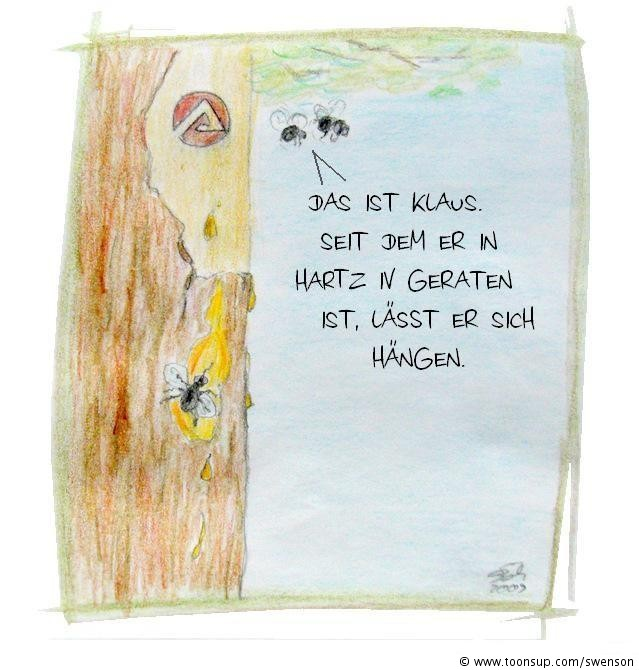 DAS IST KLAUS.
SEIT DEM ER IN
HARTZ IV GERATEN
IST, LÄSST ER SICH
HÄNGEN.
© www.toonsup.com/swenson